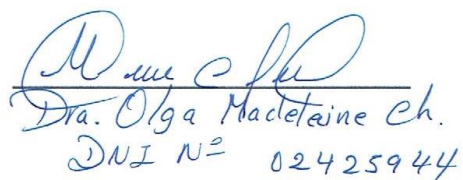 Dra. Olga Madeleine Ch.
DNI Nº 02425944